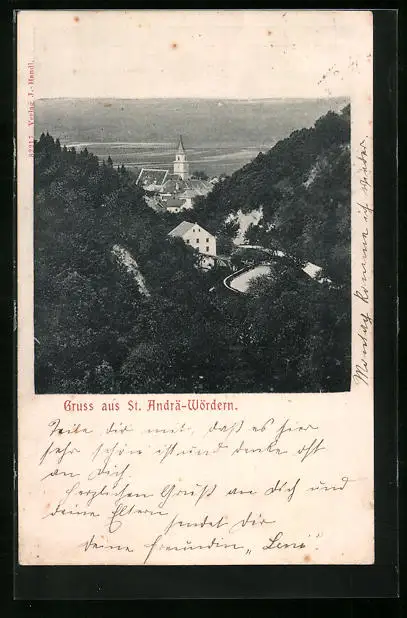 82217 Verlag J. Handl.
Gruss aus St. Andrä-Wördern.
Teile dir mit, daß es hier
sehr schön ist und denke oft
an Dich.
Herzlichen Gruß an Dich und
deine Eltern sendet Dir
deine Freundin „Leni“.
Montag komme ich wieder.